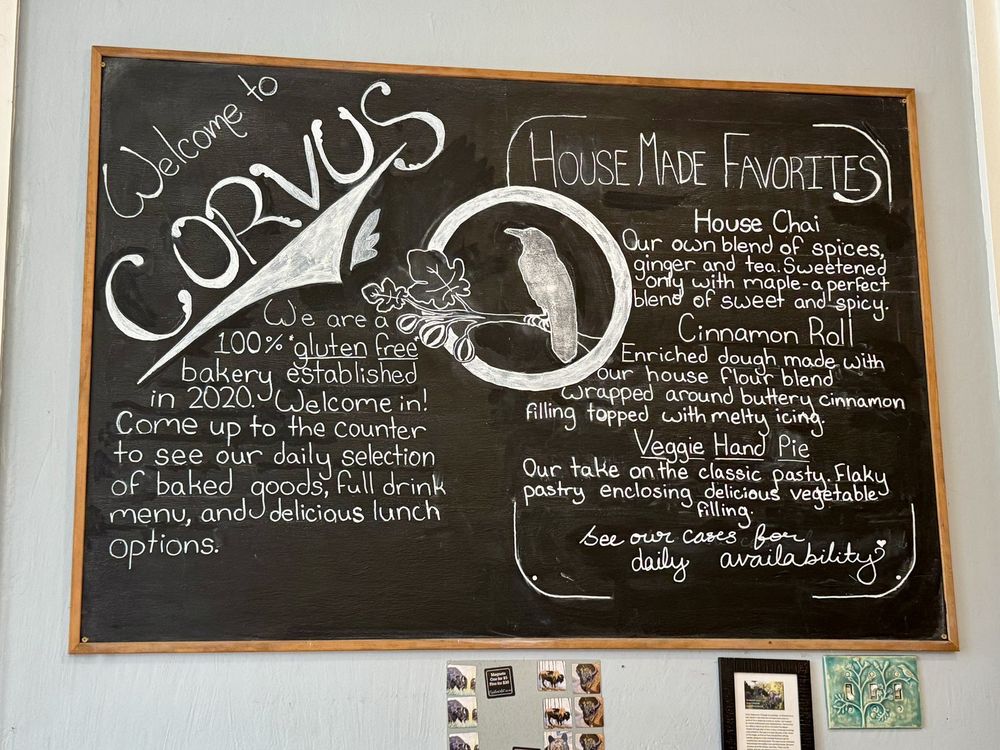 Welcome to
CORVUS
We are a
100% *gluten free*
bakery established
in 2020. Welcome in!
Come up to the counter
to see our daily selection
of baked goods, full drink
menu, and delicious lunch
options.
HOUSE MADE FAVORITES
House Chai
Our own blend of spices,
ginger and tea. Sweetened
only with maple-a perfect
blend of sweet and spicy.
Cinnamon Roll
Enriched dough made with
our house flour blend
wrapped around buttery cinnamon
filling topped with melty icing.
Veggie Hand Pie
Our take on the classic pasty. Flaky
pastry enclosing delicious vegetable
filling.
See our cases for
daily availability
Magnets
One for $5
Five for $20